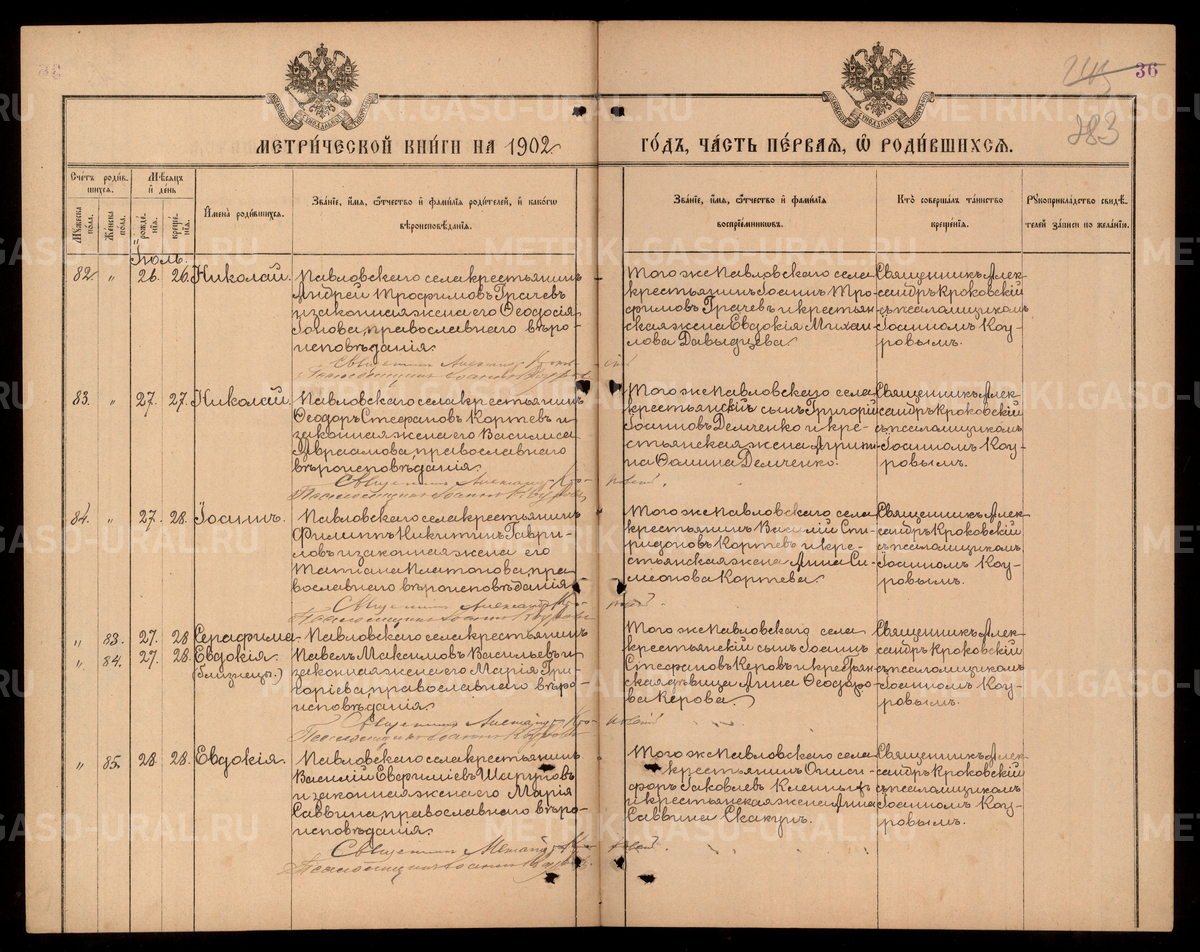 36
283
МЕТРИ́ЧЕСКОЙ КНИ́ГИ НА 1902
ГО́ДЪ, ЧА́СТЬ ПЕ́РВАЯ, Ѡ РОДИ́ВШИХСЯ.
Счетъ роди́вшихся.
Му́жеска по́ла.
Же́нска по́ла.
Мѣ́сяцъ и день
рожде́нія.
креще́нія.
Имена̀ роди́вшихся.
Зва́ніе, и́мя, ѻ́тчество и фами́лія роди́телей, и како́гѡ
вѣроисповѣ́данія.
Зва́ніе, и́мя, ѻ́тчество и фами́лія
воспріе́мниковъ.
Кто̀ соверша́лъ та́инство
креще́нія.
Рꙋкоприкла́дство свидѣ́телей за́писи по жела́нію.
Іюль.
82. " 26. 26. Николай.
Павловскаго села крестьянинъ
Андрей Трофимовъ Грачевъ
и законная жена его Ѳеодосія
Іонова, православнаго вѣро-
исповѣданія.
Того же Павловскаго села
крестьянинъ Іоаннъ Тро-
фимовъ Грачевъ и крестьян-
ская жена Евдокія Михаи-
лова Давыдцева
Священникъ Алек-
сандръ Кроковскій
съ псаломщикомъ
Іоанномъ Коу-
ровымъ.
83. " 27. 27. Николай.
Павловскаго села крестьянинъ
Ѳеодоръ Стефановъ Кортевъ и
законная жена его Василиса
Авраамова, православнаго
вѣроисповѣданія.
Того же Павловскаго села
крестьянскій сынъ Григорій
Іоанновъ Демченко и кре-
стьянская жена Агрипи-
на Ѳомина Демченко.
Священникъ Алек-
сандръ Кроковскій
съ псаломщикомъ
Іоанномъ Коу-
ровымъ.
84. " 27. 28. Іоаннъ.
Павловскаго села крестьянинъ
Филиппъ Никитинъ Гаври-
ловъ и законная жена его
Татіана Платонова, пра-
вославнаго вѣроисповѣданія
Того же Павловскаго села
крестьянинъ Василій Спи-
ридоновъ Кортевъ и кре-
стьянская жена Анна Си-
меонова Кортева
Священникъ Алек-
сандръ Кроковскій
съ псаломщикомъ
Іоанномъ Коу-
ровымъ.
" 83. 27. 28 Серафима
" 84. 27. 28. Евдокія.
(близнецы.)
Павловскаго села крестьянинъ
Павелъ Максимовъ Васильевъ и
законная жена его Марія Гри-
горіева, православнаго вѣро-
исповѣданія
Того же Павловскаго села
крестьянскій сынъ Іоаннъ
Стефановъ Керовъ и крестьян-
ская дѣвица Анна Ѳеодоро-
ва Керова.
Священникъ Алек-
сандръ Кроковскій
съ псаломщикомъ
Іоанномъ Коу-
ровымъ.
" 85. 28. 28. Евдокія.
Павловскаго села крестьянинъ
Василій Евфиміевъ Шаруновъ
и законная жена его Марія
Саввина, православнаго вѣро-
исповѣданія.
Того же Павловскаго села
крестьянинъ Ониси-
форъ Іаковлевъ
и крестьянская жена Анна
Саввина Скакунъ.
Священникъ Алек-
сандръ Кроковскій
съ псаломщикомъ
Іоанномъ Коу-
ровымъ.
METRIKI.GASO-URAL.RU